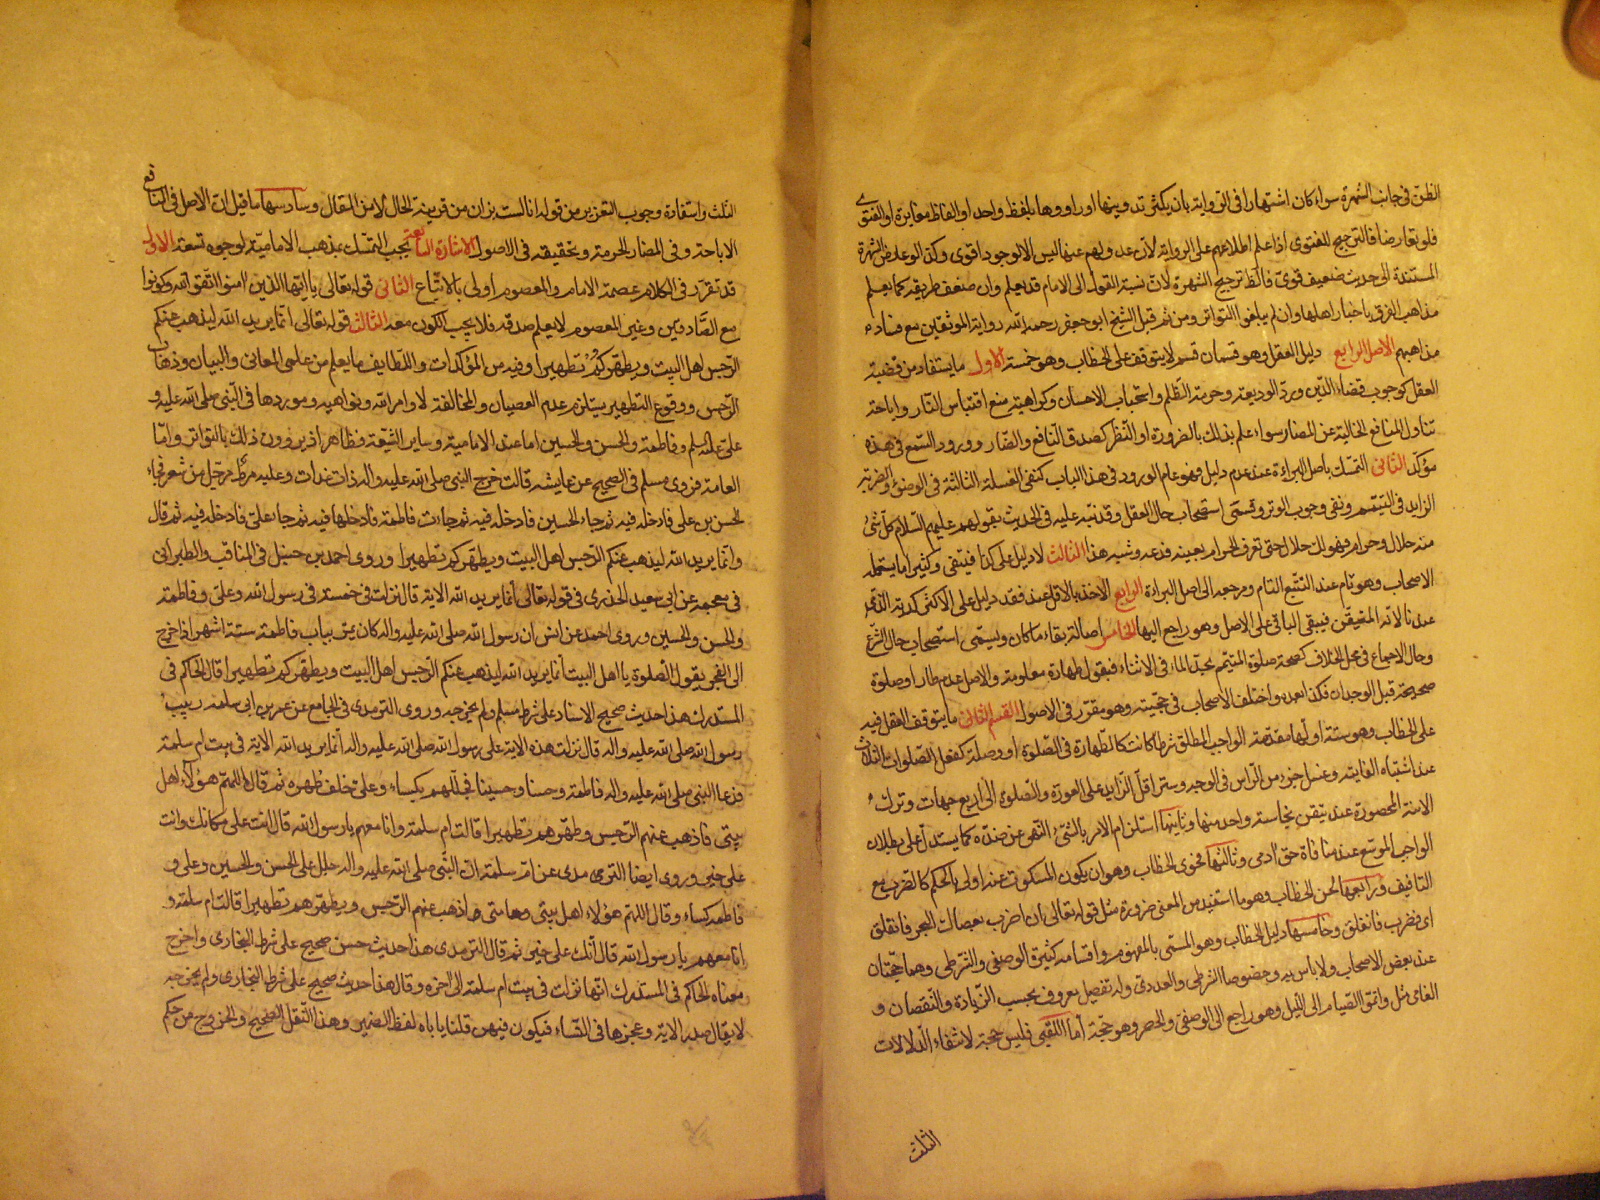 الظن في جانب الشهرة سواء كان اشتهارا في الرواية بان يكثر تدوينها او راووها بلفظ واحد او الفاظ متغايرة او الفتوى
فلو تعارضا فالترجيح للفتوى اذا علم اطلاعهم على الرواية لأن عدولهم عنها ليس الا لوجود اقوى وكذا لو عارض الشهرة
المستندة الى حديث ضعيف قوي فالظ ترجيح الشهرة لأن نسبة القول الى الامام قد يعلم وان ضعف طريقه كما يعلم
مذاهب الفرق باخبار اهلها وان لم يبلغوا التواتر ومن ثم قبل الشيخ ابو جعفر رحمه الله رواية الموثقين مع فساد
مذاهبهم الاصل الرابع دليل العقل وهو قسمان قسم لا يتوقف على الخطاب وهو خمسة الاول ما يستفاد من قضية
العقل كوجوب قضاء الدين ورد الوديعة وحرمة الظلم واستحباب الاحسان وكراهية منع اقتباس النار واباحة
تناول المنافع الخالية عن المضار سواء علم ذلك بالضرورة او النظر كصدق النافع والضار وورود السمع في هذه
مؤكد الثاني التمسك باصل البراءة عند عدم دليل وهو عام الورود في هذا الباب كنفي الغسلة الثالثة في الوضوء والضربة
الزايد في التيمم ونفي وجوب الوتر ويسمى استصحاب حال العقل وقد نبه عليه في الحديث بقولهم عليهم السلام كل شئ
منه حلال وحرام فهو لك حلال حتى تعرف الحرام بعينه فدعه وشبه هذا الثالث لا دليل على كذا فينتفي وكثيرا ما يستعمله
الاصحاب وهو تام عند التتبع التام ومرجعه الى اصل البراءة الرابع الاخذ بالاقل عند فقد دليل على الاكثر كدية الذمي
عندنا لانه المتيقن فيبقى الباقي على الاصل وهو راجع اليها الخامس اصالة بقاء ما كان ويسمى استصحاب حال الشرع
وحال الاجماع في محل الخلاف كصحة صلوة المتيمم يجد الماء في الاثناء فيقول طهارة معلومة والاصل عدم طار او صلوة
صحيحة قبل الوجدان فكذا بعده واختلف الاصحاب في حجيته وهو مقرر في الاصول القسم الثاني ما يتوقف العقل فيه
على الخطاب وهو ستة اولها مقدمة الواجب المطلق شرطا كانت كالطهارة في الصلوة او وصلة كفعل الصلوات الثلاث
عند اشتباه الفايتة وغسل جزء من الراس في الوجه وستر اقل الزايد على العورة والصلوة الى اربع جهات وترك
الانية المحصورة عند تيقن نجاسة واحد منها وثانيها استلزام الامر بالشئ النهي عن ضده كما يستدل على بطلان
الواجب الموسع عند منافاة حق ادمي وثالثها فحوى الخطاب وهو ان يكون المسكوت عنه اولى بالحكم كالضرب مع
التافيف ورابعها لحن الخطاب وهو ما استفيد من المعنى ضرورة مثل قوله تعالى ان اضرب بعصاك البحر فانفلق
اى فضرب فانفلق وخامسها دليل الخطاب وهو المسمى بالمفهوم واقسامه كثيرة الوصفي والشرطي وهما حجتان
عند بعض الاصحاب ولا باس به وخصوصا الشرطي والعددي وله تفصيل معروف بحسب الزيادة والنقصان و
الغائي مثل واتموا الصيام الى الليل وهو راجع الى الوصفي والحصر وهو حجة أما اللقبي فليس حجة لانتفاء الدلالات
الثلث
الثلث واستفادة وجوب التعزير من قوله انا لست بزان من قرينة الحال لا من المقال وسادسها ما قيل ان الاصل في النافع
الاباحة وفي المضار الحرمة وتحقيقه في الاصول الاشارة السابعة يجب التمسك بمذهب الامامية لوجوه تسعة الاول
قد تقرر في الكلام عصمة الامام والمعصوم اولى بالاتباع الثاني قوله تعالى يا ايها الذين امنوا اتقوا الله وكونوا
مع الصادقين وغير المعصوم لا يعلم صدقه فلا يجب الكون معه الثالث قوله تعالى انما يريد الله ليذهب عنكم
الرجس اهل البيت ويطهركم تطهيرا وفيه من المؤكدات واللطايف ما يعلم من علمي المعاني والبيان وذهاب
الرجس ووقوع التطهير يستلزم عدم العصيان والمخالفة لاوامر الله ونواهيه وموردها في النبي صلى الله عليه و
علي عليه السلم وفاطمة والحسن والحسين اما عند الامامية وساير الشيعة فظاهر اذ يروون ذلك بالتواتر واما
العامة فروى مسلم في الصحيح عن عايشه قالت خرج النبي صلى الله عليه واله ذات غداة وعليه مرط مرحل من شعر فجاء
الحسن بن علي فادخله فيه ثم جاء الحسين فادخله فيه ثم جاءت فاطمة فادخلها فيه ثم جاء علي فادخله فيه ثم قال
وانما يريد الله ليذهب عنكم الرجس اهل البيت ويطهركم تطهيرا وروى احمد بن حنبل في المناقب والطبراني
في معجمه عن ابي سعيد الخدري في قوله تعالى أنما يريد الله الاية قال نزلت في خمسة في رسول الله وعلي وفاطمة
والحسن والحسين وروى احمد عن انس ان رسول الله صلى الله عليه واله كان يمر بباب فاطمة ستة اشهر اذا خرج
الى الفجر يقول الصلوة يا اهل البيت انما يريد الله ليذهب عنكم الرجس اهل البيت ويطهركم تطهيرا قال الحاكم في
المستدرك هذا حديث صحيح الاسناد على شرط مسلم ولم يخرجه وروى الترمذي في الجامع عن عمر بن ابي سلمة ربيب
رسول الله صلى الله عليه واله قال نزلت هذه الاية على رسول الله صلى الله عليه واله أنما يريد الله الاية في بيت ام سلمة
فدعا النبي صلى الله عليه واله فاطمة وحسنا وحسينا فجللهم بكساء وعلي خلف ظهره ثم قال اللهم هؤلاء اهل
بيتي فاذهب عنهم الرجس وطهرهم تطهيرا قالت ام سلمة وانا معهم يا رسول الله قال انت على مكانك وانت
على خير وروى ايضا الترمذي عن ام سلمة ان النبي صلى الله عليه واله جلل على الحسن والحسين وعلي و
فاطمة كساء وقال اللهم هؤلاء اهل بيتي وحامتي اذهب عنهم الرجس ويطهرهم تطهيرا قالت ام سلمة و
انا معهم يا رسول الله قال أنك على خير ثم قال الترمذي هذا حديث حسن صحيح على شرط البخاري واخرج
معناه الحاكم في المستدرك انها نزلت في بيت ام سلمة الى اخره وقال هذا حديث صحيح على شرط البخاري ولم يخرجه
لا يقال صدر الاية وعجزها في النساء فيكون فيهن قلنا ياباه لفظ الضمير وهذا النقل الصحيح والخروج من حكم